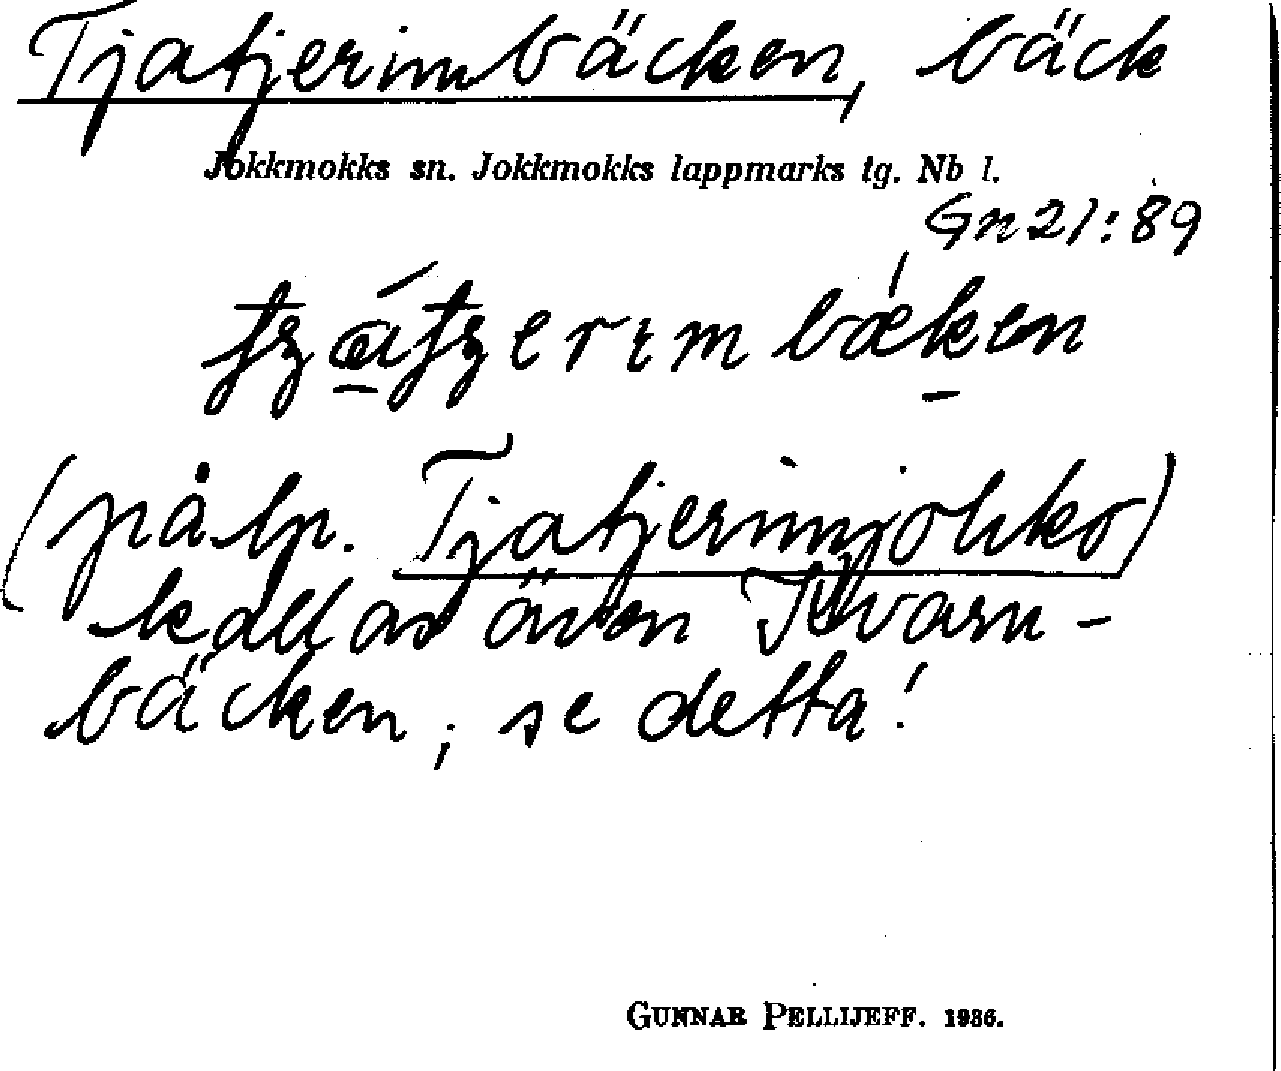 Tjatjerimbäcken, bäck
Jokkmokks sn. Jokkmokks lappmarks tg. Nb l.
Gn 21:89
bæken
(på lp. Tjatjerimjohko)
kallas även Kvarn-
bäcken; se detta!
GUNNAR PELLIJEFF. 1936.